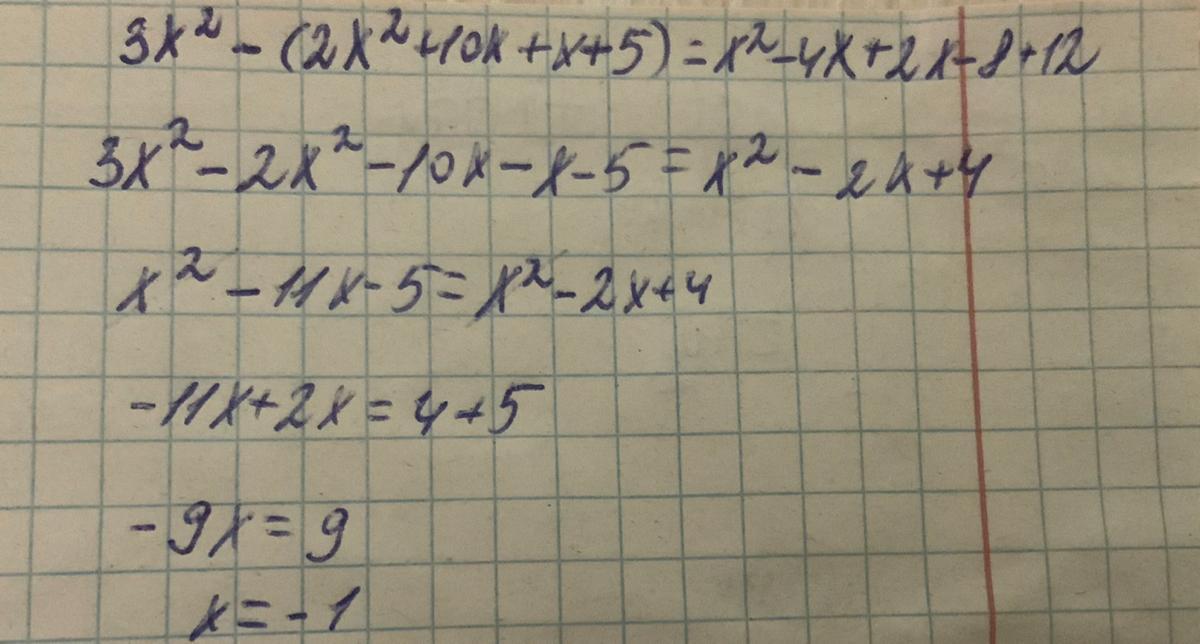 3x² - (2x² + 10x + x + 5) = x² - 4x + 2x - 8 + 12
3x² - 2x² - 10x - x - 5 = x² - 2x + 4
x² - 11x - 5 = x² - 2x + 4
-11x + 2x = 4 + 5
-9x = 9
x = -1